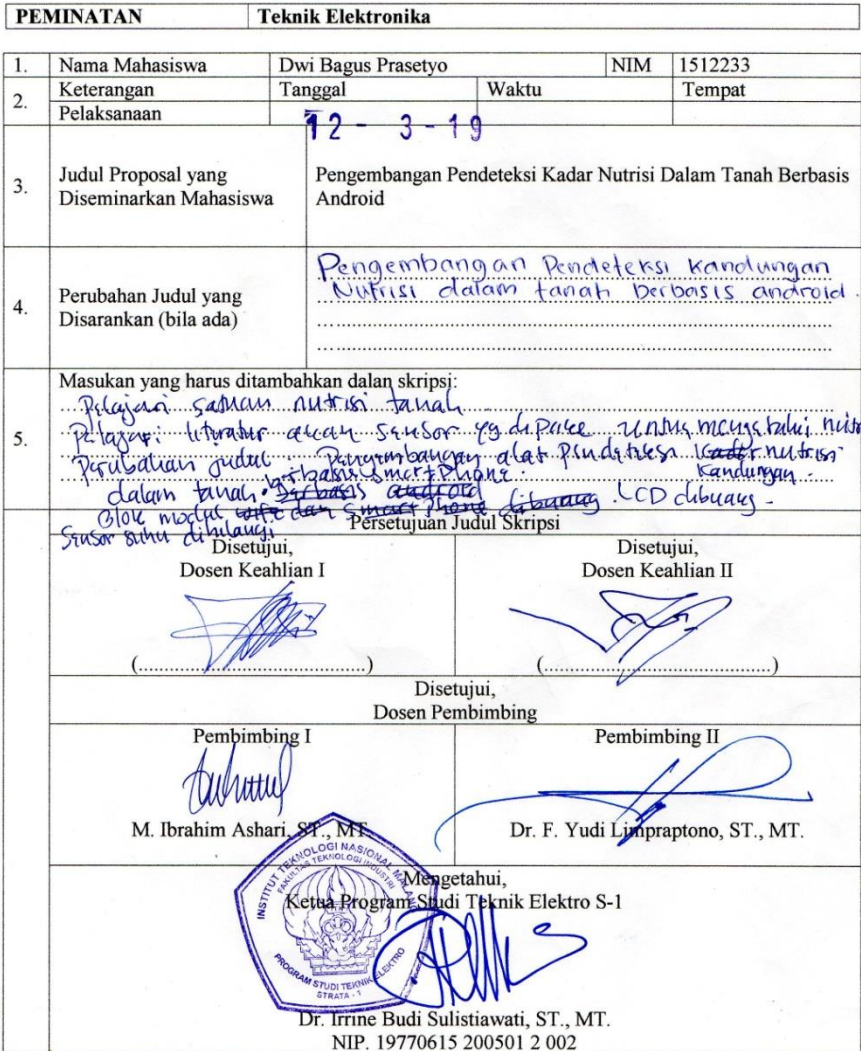 PEMINATAN Teknik Elektronika
1. Nama Mahasiswa Dwi Bagus Prasetyo NIM 1512233
2. Keterangan Tanggal Waktu Tempat
Pelaksanaan 12 - 3 - 19
3. Judul Proposal yang Diseminarkan Mahasiswa
Pengembangan Pendeteksi Kadar Nutrisi Dalam Tanah Berbasis
Android
4. Perubahan Judul yang Disarankan (bila ada)
Pengembangan Pendeteksi Kandungan
Nutrisi dalam tanah berbasis android.
5. Masukan yang harus ditambahkan dalan skripsi:
Pelajari satuan nutrisi tanah
Pelajari literatur akan sensor yg dipake untuk mengetahui nutr
Perubahan judul. Pengembangan alat pendeteksi kadar nutrisi
Kandungan
dalam tanah berbasis smartphone. berbasis android
Blok modul wifi dan smart phone dibuang. LCD dibuang -
Sensor suhu dihilangi
Persetujuan Judul Skripsi
Disetujui,
Dosen Keahlian I
Disetujui,
Dosen Keahlian II
(..........................................)
(..........................................)
Disetujui,
Dosen Pembimbing
Pembimbing I
M. Ibrahim Ashari, ST., MT.
Pembimbing II
Dr. F. Yudi Limpraptono, ST., MT.
Mengetahui,
Ketua Program Studi Teknik Elektro S-1
INSTITUT TEKNOLOGI NASIONAL MALANG
FAKULTAS TEKNOLOGI INDUSTRI
PROGRAM STUDI TEKNIK ELEKTRO
STRATA - 1
Dr. Irrine Budi Sulistiawati, ST., MT.
NIP. 19770615 200501 2 002